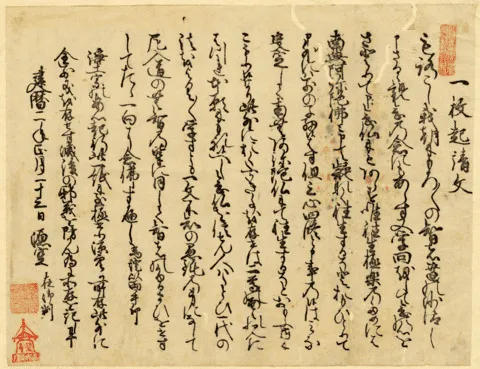 一枚起請文
もろこし我朝にもろ〳〵の智者達の沙汰し
申さるゝ観念の念にもあらす又学問して念の心を
さとりて申念仏にもあらすたゝ往生極楽のためには
南無阿弥陀仏と申て疑なく往生するそと思ひとりて
申外には別の子細候はす但三心四修と申事の候は皆
決定して南無阿弥陀仏にて往生するそと思ふ内に
こもり候也此外におくふかき事を存せは二尊のあはれみに
はつれ本願にもれ候へし念仏を信せん人はたとひ一代の
法を能々学すとも文不知の愚鈍の身になして
尼入道の無智のともからに同して智者のふるまひをせす
して只一向に念仏すへし 為証以両手印
浄土宗の安心起行此一紙に至極せり源空か所存此外に
全く別義を存せす滅後の邪義を防んか為に所存を記し畢
建暦二年正月二十三日 源空 在御判